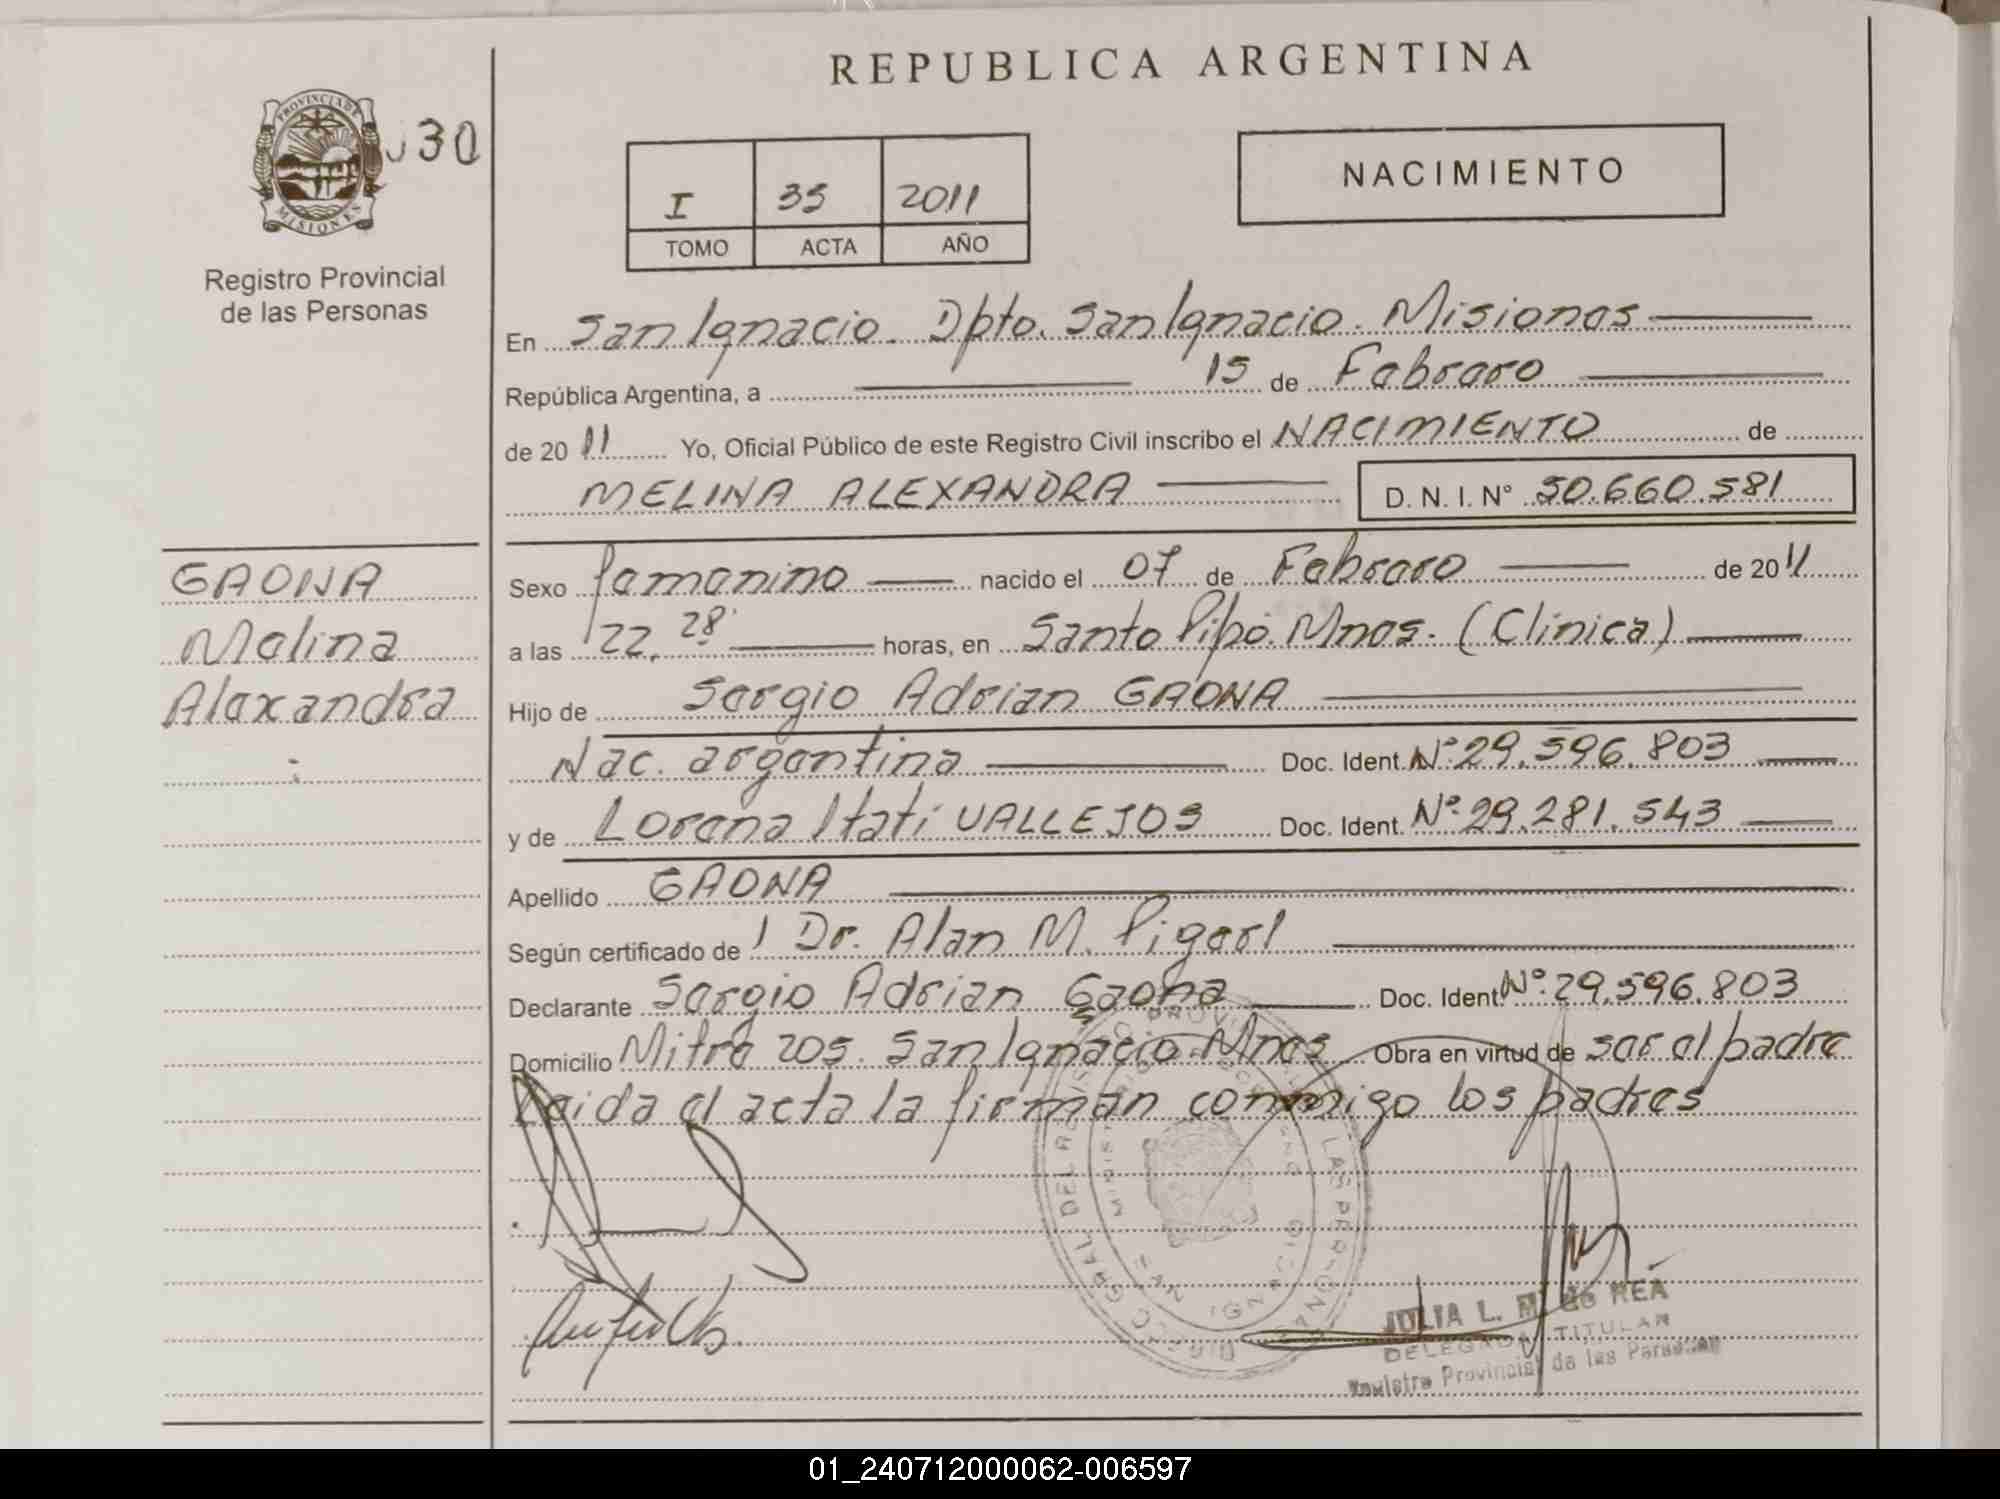 REPUBLICA ARGENTINA
PROVINCIA DE
MISIONES
030
Registro Provincial
de las Personas
I 35 2011
TOMO ACTA AÑO
NACIMIENTO
En San Ignacio. Dpto. San Ignacio. Misiones
República Argentina, a 15 de Febrero
de 2011 Yo, Oficial Público de este Registro Civil inscribo el NACIMIENTO de
MELINA ALEXANDRA D. N. I. N° 50.660.581
GAONA
Melina
Alexandra
Sexo femenino nacido el 07 de Febrero de 2011
a las 22,28' horas, en Santo Pipó. Mnes. (Clínica)
Hijo de Sergio Adrian GAONA
Nac. argentina Doc. Ident. N° 29.596.803
y de Lorena Itatí VALLEJOS Doc. Ident. N° 29.281.543
Apellido GAONA
Según certificado de l Dr. Alan M. Pigerl
Declarante Sergio Adrian Gaona Doc. Ident. N° 29.596.803
Domicilio Mitre 205. San Ignacio. Mnes Obra en virtud de ser el padre
Leida el acta la firman conmigo los padres
JULIA L. M. de REA
DELEGADA TITULAR
Registro Provincial de las Personas
01_240712000062-006597